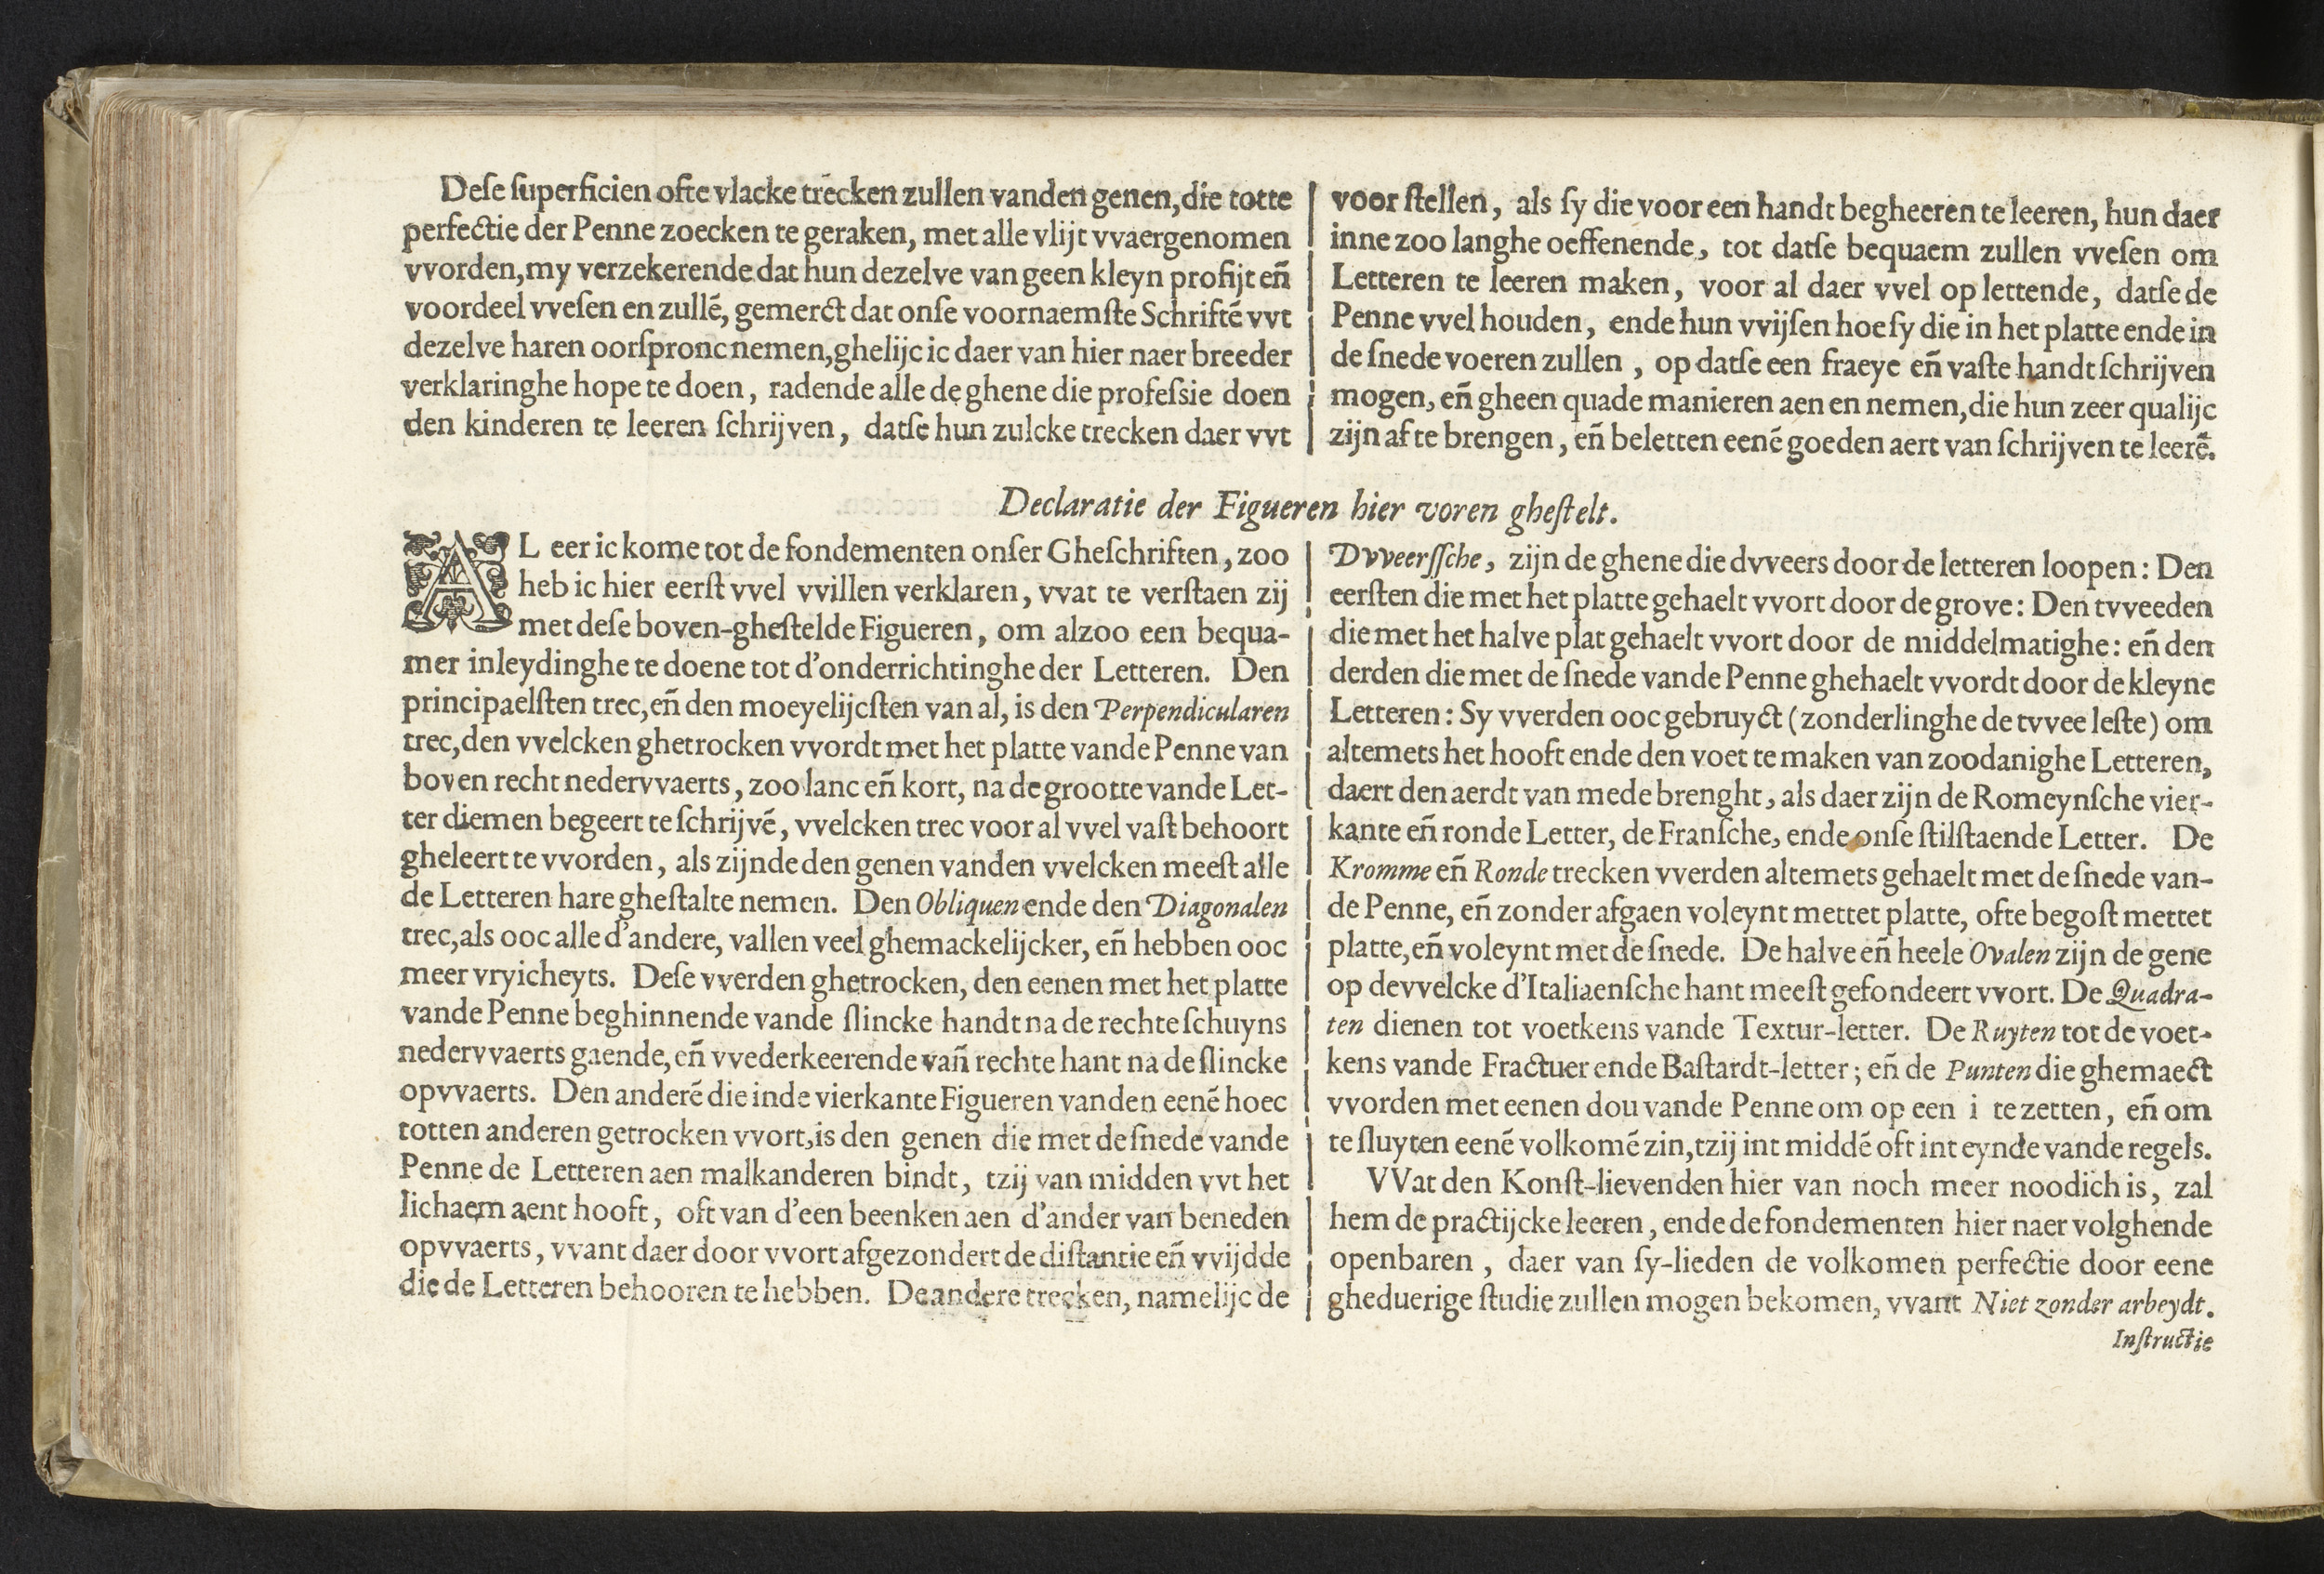 Deſe ſuperficien ofte vlacke trecken zullen vanden genen, die totte
perfectie der Penne zoecken te geraken, met alle vlijt vvaergenomen
vvorden, my verzekerende dat hun dezelve van geen kleyn profijt eñ
voordeel vveſen en zullē, gemerct dat onſe voornaemſte Schriftē vvt
dezelve haren oorſpronc nemen, ghelijc ic daer van hier naer breeder
verklaringhe hope te doen, radende alle de ghene die profeſsie doen
den kinderen te leeren ſchrijven, datſe hun zulcke trecken daer vvt
voor ſtellen, als ſy die voor een handt begheeren te leeren, hun daer
inne zoo langhe oeffenende, tot datſe bequaem zullen vveſen om
Letteren te leeren maken, voor al daer vvel op lettende, datſe de
Penne vvel houden, ende hun vvijſen hoe ſy die in het platte ende in
de ſnede voeren zullen, op datſe een fraeye eñ vaſte handt ſchrijven
mogen, eñ gheen quade manieren aen en nemen, die hun zeer qualijc
zijn af te brengen, eñ beletten eenē goeden aert van ſchrijven te leerē.
Declaratie der Figueren hier voren gheſtelt.
AL eer ic kome tot de fondementen onſer Gheſchriften, zoo
heb ic hier eerſt vvel vvillen verklaren, vvat te verſtaen zij
met deſe boven-gheſtelde Figueren, om alzoo een bequa-
mer inleydinghe te doene tot d'onderrichtinghe der Letteren. Den
principaelſten trec, eñ den moeyelijcſten van al, is den Perpendicularen
trec, den vvelcken ghetrocken vvordt met het platte vande Penne van
boven recht nedervvaerts, zoo lanc eñ kort, na de grootte vande Let-
ter diemen begeert te ſchrijvē, vvelcken trec voor al vvel vaſt behoort
gheleert te vvorden, als zijnde den genen vanden vvelcken meeſt alle
de Letteren hare gheſtalte nemen. Den Obliquen ende den Diagonalen
trec, als ooc alle d'andere, vallen veel ghemackelijcker, eñ hebben ooc
meer vryicheyts. Deſe vverden ghetrocken, den eenen met het platte
vande Penne beghinnende vande ſlincke handt na de rechte ſchuyns
nedervvaerts gaende, eñ vvederkeerende vañ rechte hant na de ſlincke
opvvaerts. Den anderē die inde vierkante Figueren vanden eenē hoec
totten anderen getrocken vvort, is den genen die met de ſnede vande
Penne de Letteren aen malkanderen bindt, tzij van midden vvt het
lichaem aent hooft, oft van d'een beenken aen d'ander van beneden
opvvaerts, vvant daer door vvort afgezondert de diſtantie eñ vvijdde
die de Letteren behooren te hebben. De andere trecken, namelijc de
Dvveerſſche, zijn de ghene die dvveers door de letteren loopen: Den
eerſten die met het platte gehaelt vvort door de grove: Den tvveeden
die met het halve plat gehaelt vvort door de middelmatighe: eñ den
derden die met de ſnede vande Penne ghehaelt vvordt door de kleyne
Letteren: Sy vverden ooc gebruyct (zonderlinghe de tvvee leſte) om
altemets het hooft ende den voet te maken van zoodanighe Letteren,
daert den aerdt van mede brenght, als daer zijn de Romeynſche vier-
kante eñ ronde Letter, de Franſche, ende onſe ſtilſtaende Letter. De
Kromme eñ Ronde trecken vverden altemets gehaelt met de ſnede van-
de Penne, eñ zonder afgaen voleynt mettet platte, ofte begoſt mettet
platte, eñ voleynt met de ſnede. De halve eñ heele Ovalen zijn de gene
op devvelcke d'Italiaenſche hant meeſt gefondeert vvort. De Quadra-
ten dienen tot voetkens vande Textur-letter. De Ruyten tot de voet-
kens vande Fractuer ende Baſtardt-letter; eñ de Punten die ghemaect
vvorden met eenen dou vande Penne om op een i te zetten, eñ om
te ſluyten eenē volkomē zin, tzij int middē oft int eynde vande regels.
VVat den Konſt-lievenden hier van noch meer noodich is, zal
hem de practijcke leeren, ende de fondementen hier naer volghende
openbaren, daer van ſy-lieden de volkomen perfectie door eene
gheduerige ſtudie zullen mogen bekomen, vvant Niet zonder arbeydt.
Inſtructie